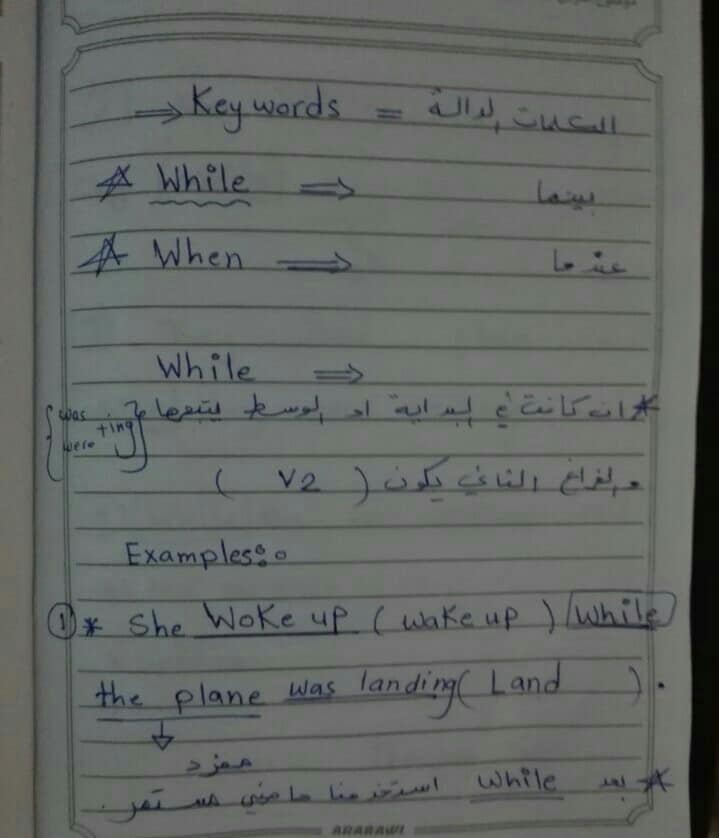 ⇒ Keywords = الكلمات الدالة
☆ While ⇒ بينما
☆ When ⇒ عندما
While ⇒
* ان كانت في البداية او الوسط يتبعها { was were +ing }
والفراغ الثاني يكون ( V2 )
Examples:
① * She Woke up ( wake up ) While
the plane was landing ( Land ) .
مفرد
* بعد While استخدمنا ماضي مستمر .
ARARAWI